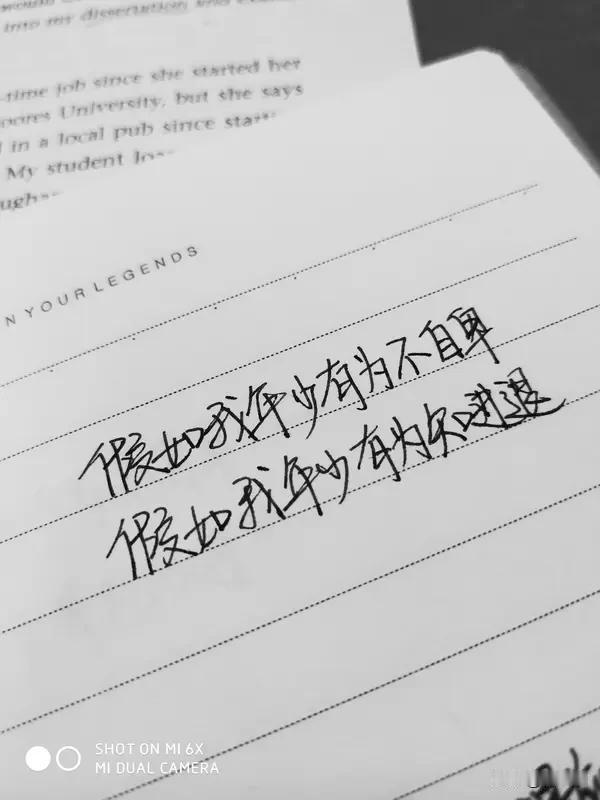 into my dissertation and
-time job since she started her
oores University, but she says
in a local pub since star
My student loa
ugh
N YOUR LEGENDS
假如我年少有为不自卑
假如我年少有为知进退
SHOT ON MI 6X
MI DUAL CAMERA